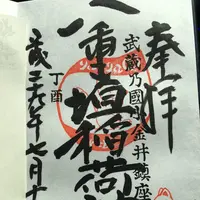 奉拝
武蔵乃國小金井鎮座
八重垣稲荷
丁酉
成二十九年七月十